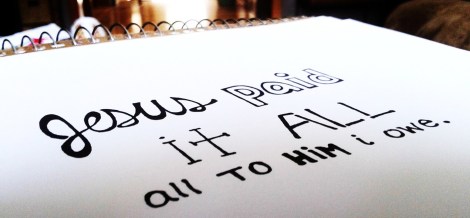 Jesus paid
iT ALL
all TO HiM i owe.